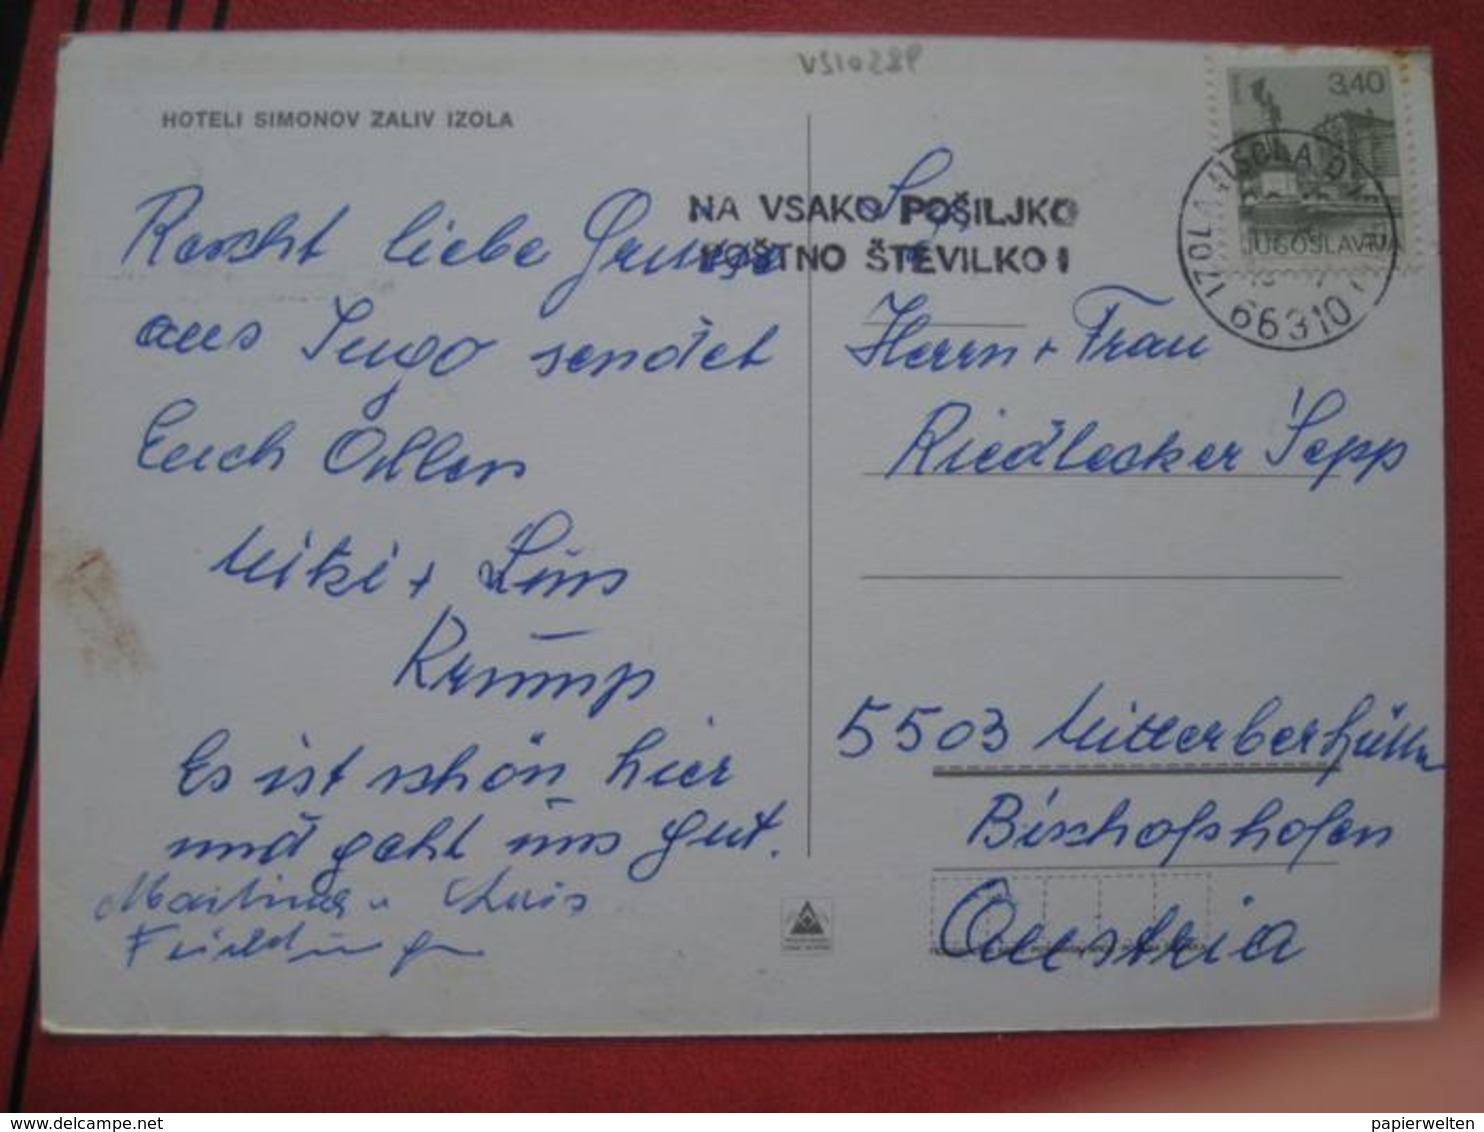 VS10289
HOTELI SIMONOV ZALIV IZOLA
3,40
JUGOSLAVIJA
IZOLA-ISOLA
66310
NA VSAKO POŠILJKO
POŠTNO ŠTEVILKO!
Recht liebe Grüsse
aus Jugo sendet
Euch Allen
Miki + Luis
Krump
Es ist schön hier
und geht uns gut.
Martina u Luis
Fam.
Herrn + Frau
Riedlecker Sepp
5503 Mitterberhütten
Bischofshofen
Austria
papierwelten